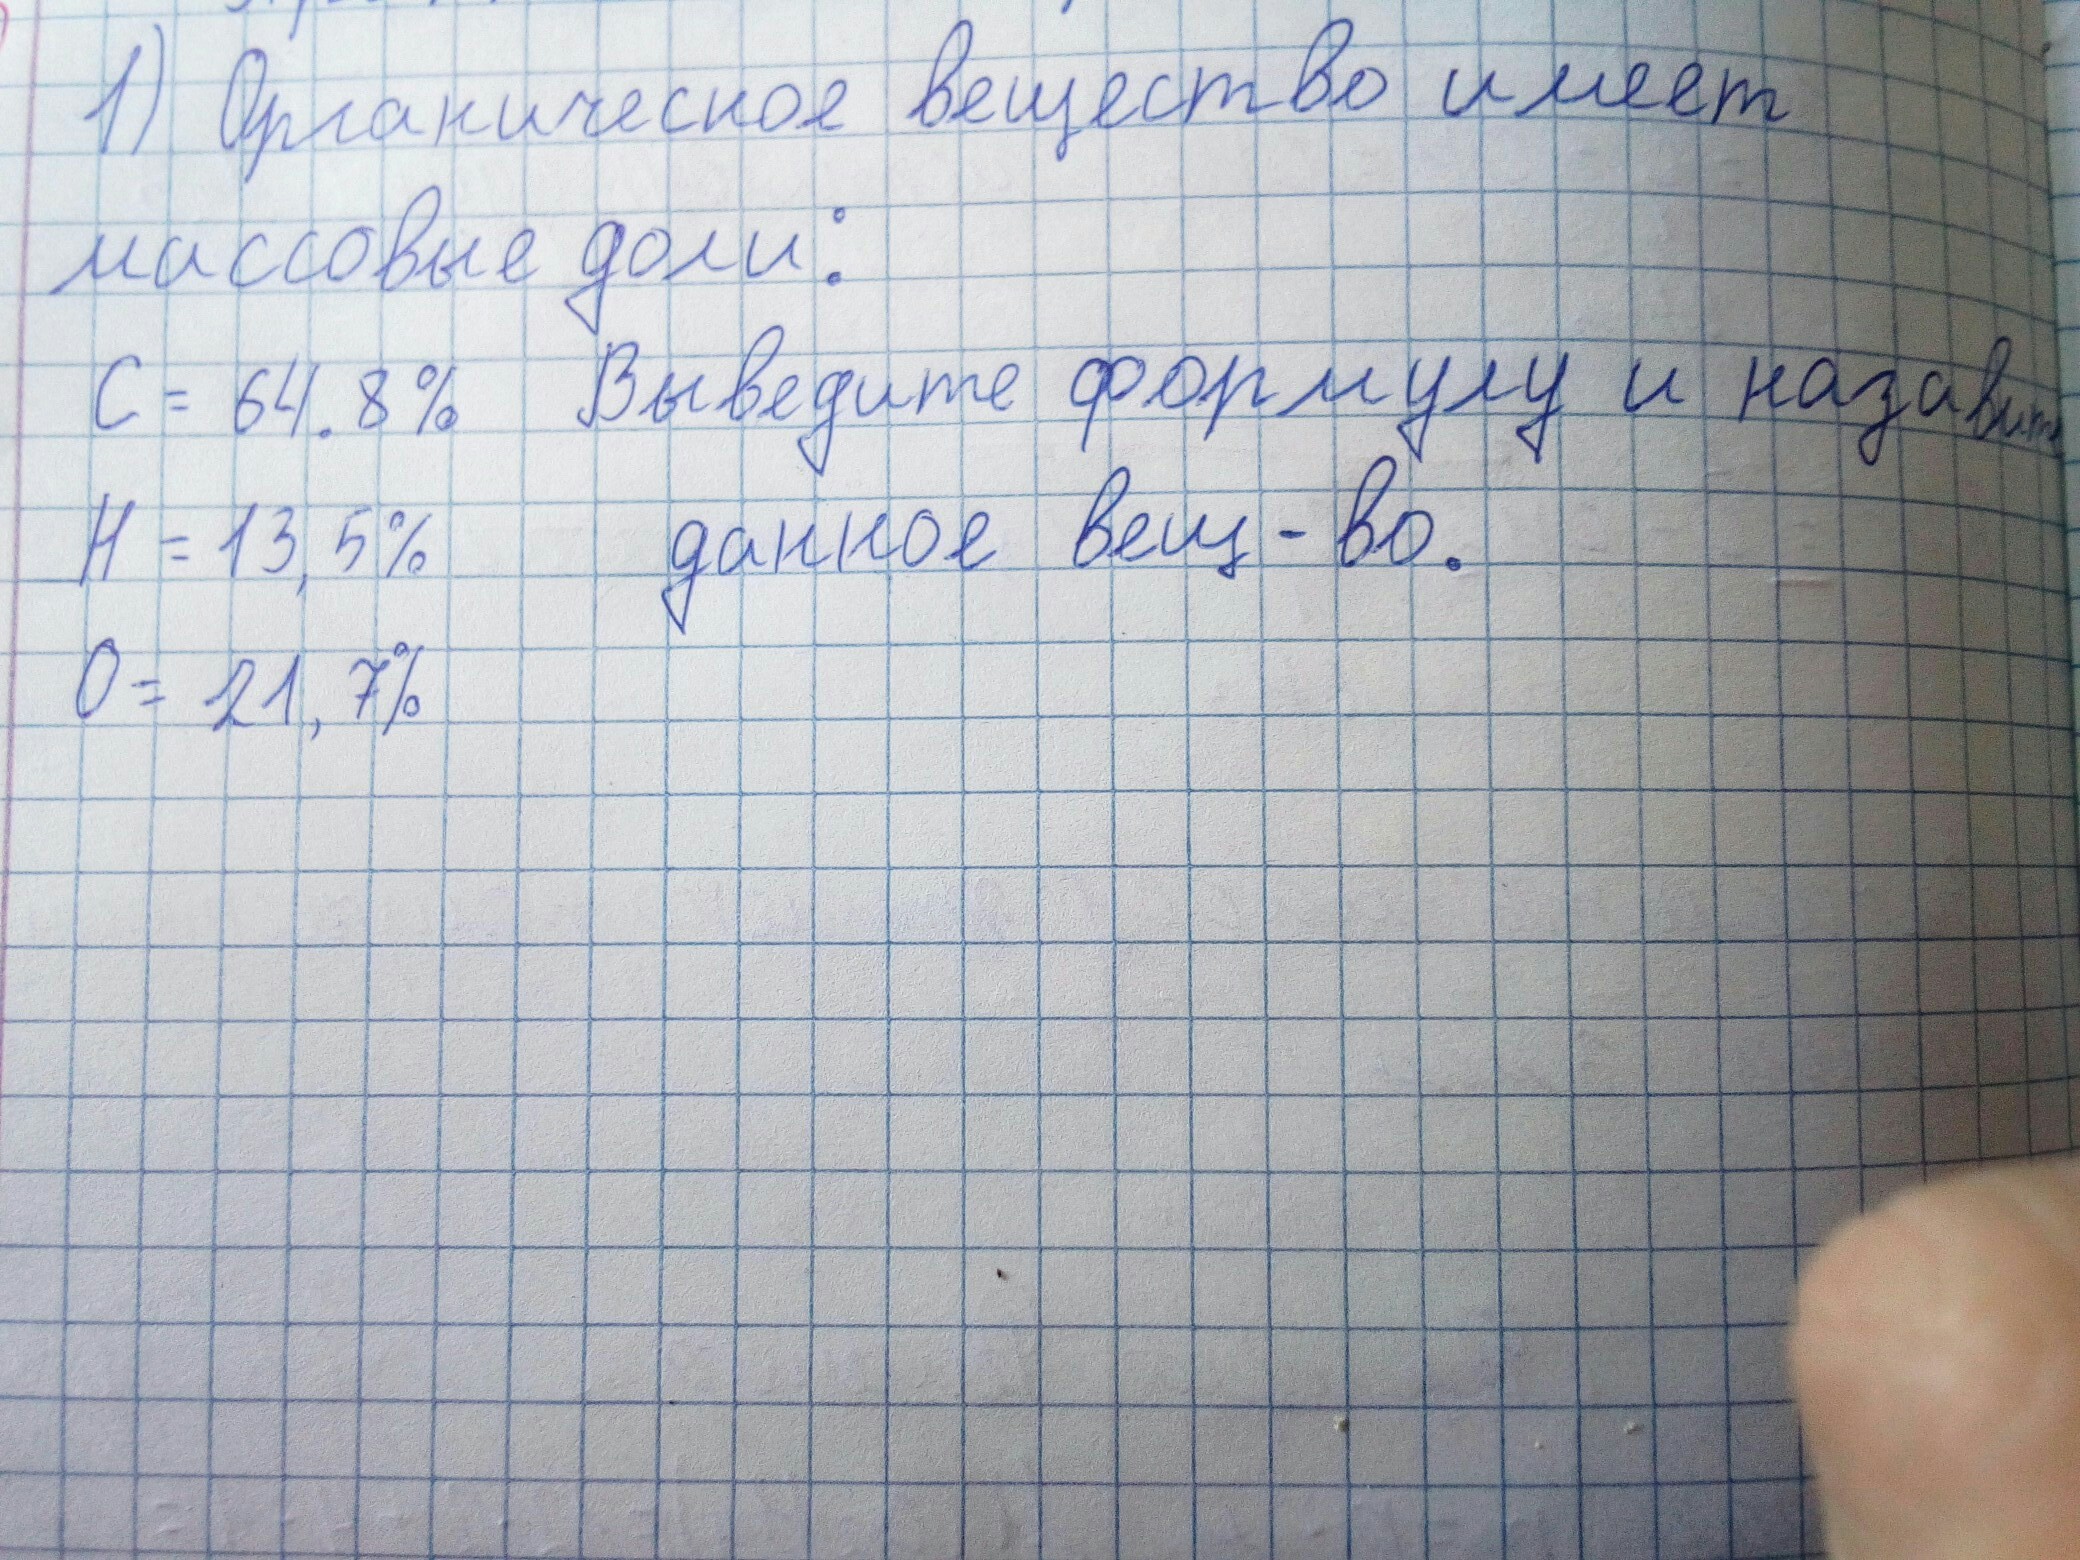 1) Органическое вещество имеет
массовые доли:
C = 64.8% Выведите формулу и назавите
H = 13,5% данное вещ-во.
O = 21,7%